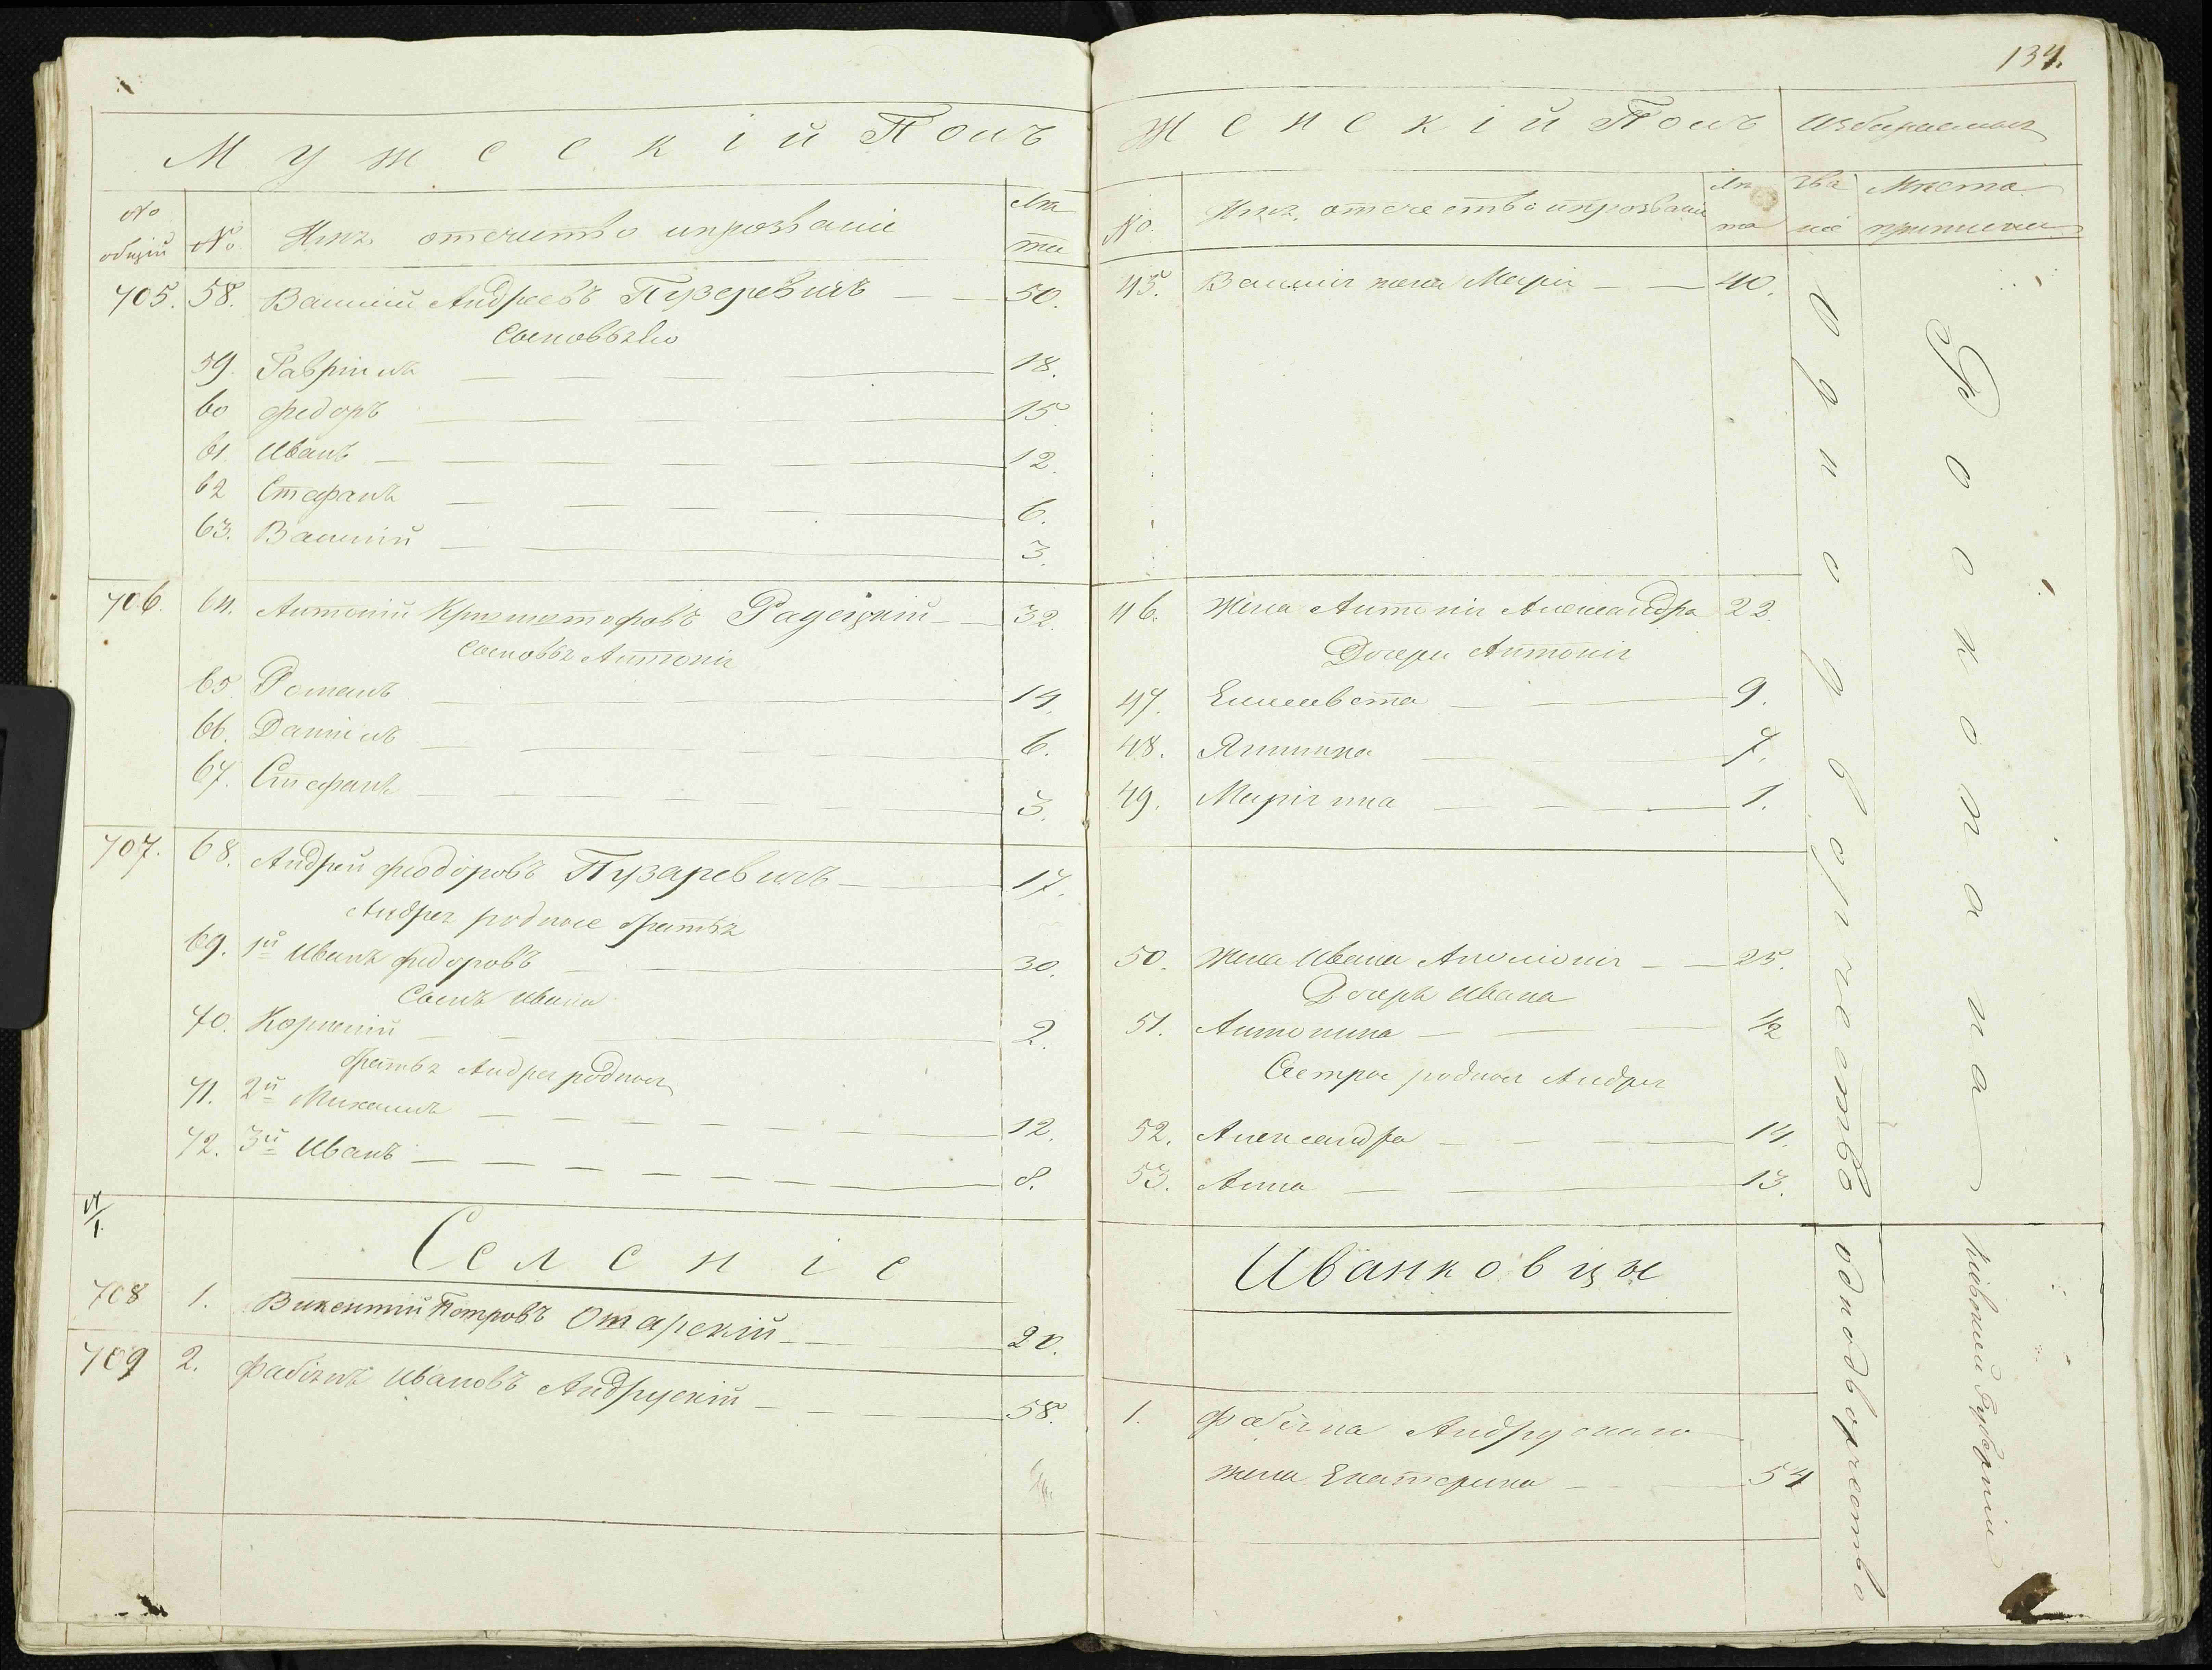 134.
Мужескій Полъ
№ общій
№
Имя, отечитво и прозваніе
Лѣта
705. 58. Василій Андреевъ Пузеревичъ 50.
Сыновья его
59. Гавріилъ 18.
60 Федоръ 15.
61. Иванъ 12.
62 Стефанъ 6.
63. Василій 3.
706. 64. Антоній Криштофовъ Радецкій 32.
Сыновья Антонія
65. Романъ 14.
66. Даніилъ 6.
67. Стефанъ 3.
707. 68. Андрей Феодоровъ Пузаревичъ 17.
Андрея родные братья
69. 1й Иванъ Федоровъ 30.
Сынъ Ивана
70. Корнелій 2.
братья Андрея родные
71. 2й Михаилъ 12.
72. 3й Иванъ 8.
Селеніе
708 1. Викентій Петровъ Отарскій 20.
709 2. Фабіянъ Ивановъ Андрускій 58.
Женскій Полъ
Избираемыя
№.
Имя, отечество и прозваніе
Лѣта
Званіе
Мѣста приписки
45. Василія жена Марія 40.
46. Жена Антонія Александра 22.
Дочери Антонія
47. Елисавета 9.
48. Ягнишка 7.
49. Маріяна 1.
50. Жена Ивана Аполонія 25.
Дочерь Ивана
51. Антонина 1/2
Сестры родныя Андрея
52. Александра 14.
53. Анна 13.
Иванковцы
1. Фабіяна Андрускаго
жена Екатерина 54
однодворчество
однодворчество
Кіевской Губерніи